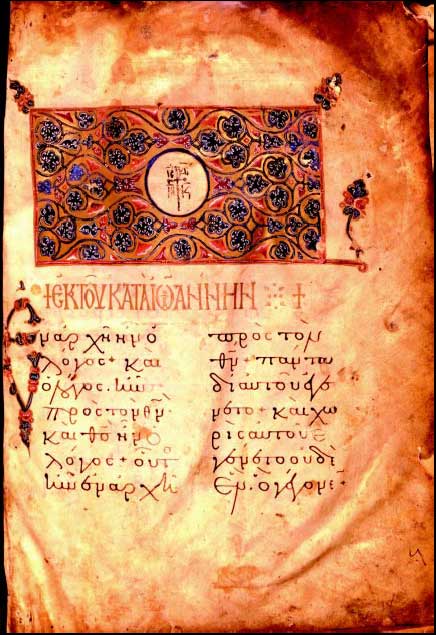 + ἐκ τοῦ κατὰ Ἰωάννην +
Ἐν ἀρχῇ ἦν ὁ
λόγος + καὶ
ὁ λόγος ἦν
πρὸς τὸν θν·
καὶ θς ἦν ὁ
λόγος + οὗτος
ἦν ἐν ἀρχῇ
πρὸς τὸν
θν + πάντα
δι αὐτοῦ ἐγέ
νετο + καὶ χω
ρὶς αὐτοῦ ἐ
γένετο οὐδὲ
ἕν. ὃ γέγονε +